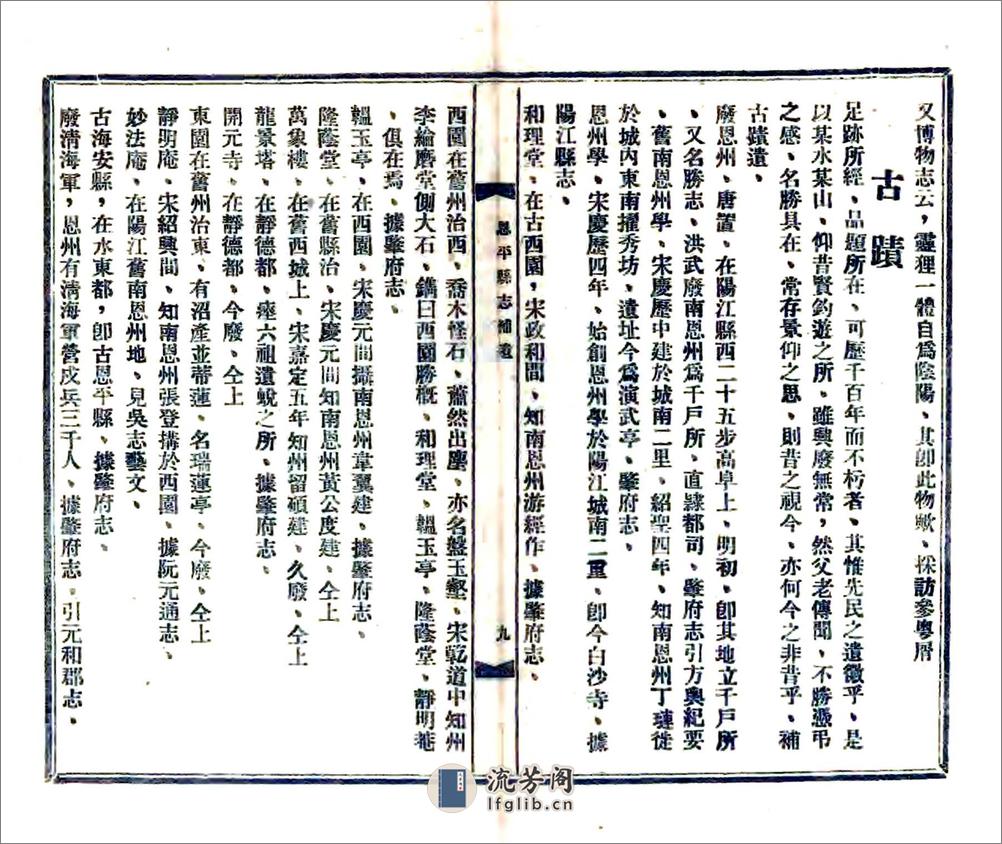 又博物志云，靈狸一體自爲陰陽、其卽此物歟、採訪參粵屑
古蹟
足跡所經、品題所在、可歷千百年而不朽者、其惟先民之遺徵乎、是
以某水某山、仰昔賢釣遊之所、雖興廢無常，然父老傳聞、不勝憑弔
之感、名勝具在、常存景仰之思、則昔之視今、亦何今之非昔乎、補
古蹟遺、
廢恩州、唐置、在陽江縣西二十五步高阜上、明初、卽其地立千戶所
、又名勝志、洪武廢南恩州爲千戶所、直隸都司、肇府志引方輿紀要
、舊南恩州學、宋慶歷中建於城南二里、紹聖四年、知南恩州丁璉徙
於城內東南擢秀坊、遺址今爲演武亭、肇府志、
恩州學、宋慶歷四年、始創恩州學於陽江城南二里、卽今白沙寺、據
陽江縣志、
和理堂、在古西園，宋政和間、知南恩州游經作、據肇府志、
恩平縣志補遺
九
西園在舊州治西、喬木怪石、蕭然出塵、亦名盤玉壑、宋乾道中知州
李綸磨堂側大石、鐫曰西園勝概、和理堂、韞玉亭、隆蔭堂、靜明菴
、俱在焉、據肇府志、
韞玉亭、在西園、宋慶元間攝南恩州韋翼建、據肇府志、
隆蔭堂、在舊縣治、宋慶元間知南恩州黃公度建、仝上
萬象樓、在舊西城上、宋嘉定五年知州留碩建、久廢、仝上
龍景塔、在靜德都、瘞六祖遺蛻之所、據肇府志、
開元寺、在靜德都、今廢、仝上
東園在舊州治東、有沼產並蒂蓮、名瑞蓮亭、今廢、仝上
靜明庵、宋紹興間、知南恩州張登搆於西園、據阮元通志、
妙法庵、在陽江舊南恩州地、見吳志藝文、
古海安縣，在水東都，卽古恩平縣、據肇府志、
廢淸海軍，恩州有淸海軍當戍兵三千人、據肇府志、引元和郡志、
流芳阁
lfglib.cn